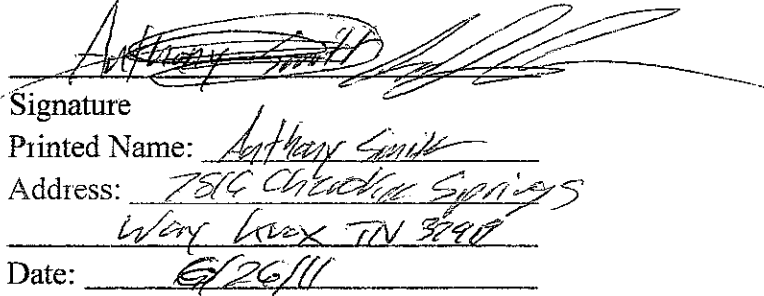 Anthony Smith
Signature
Printed Name: Anthony Smith
Address: Springs
Way Knox TN
Date: 6/26/11